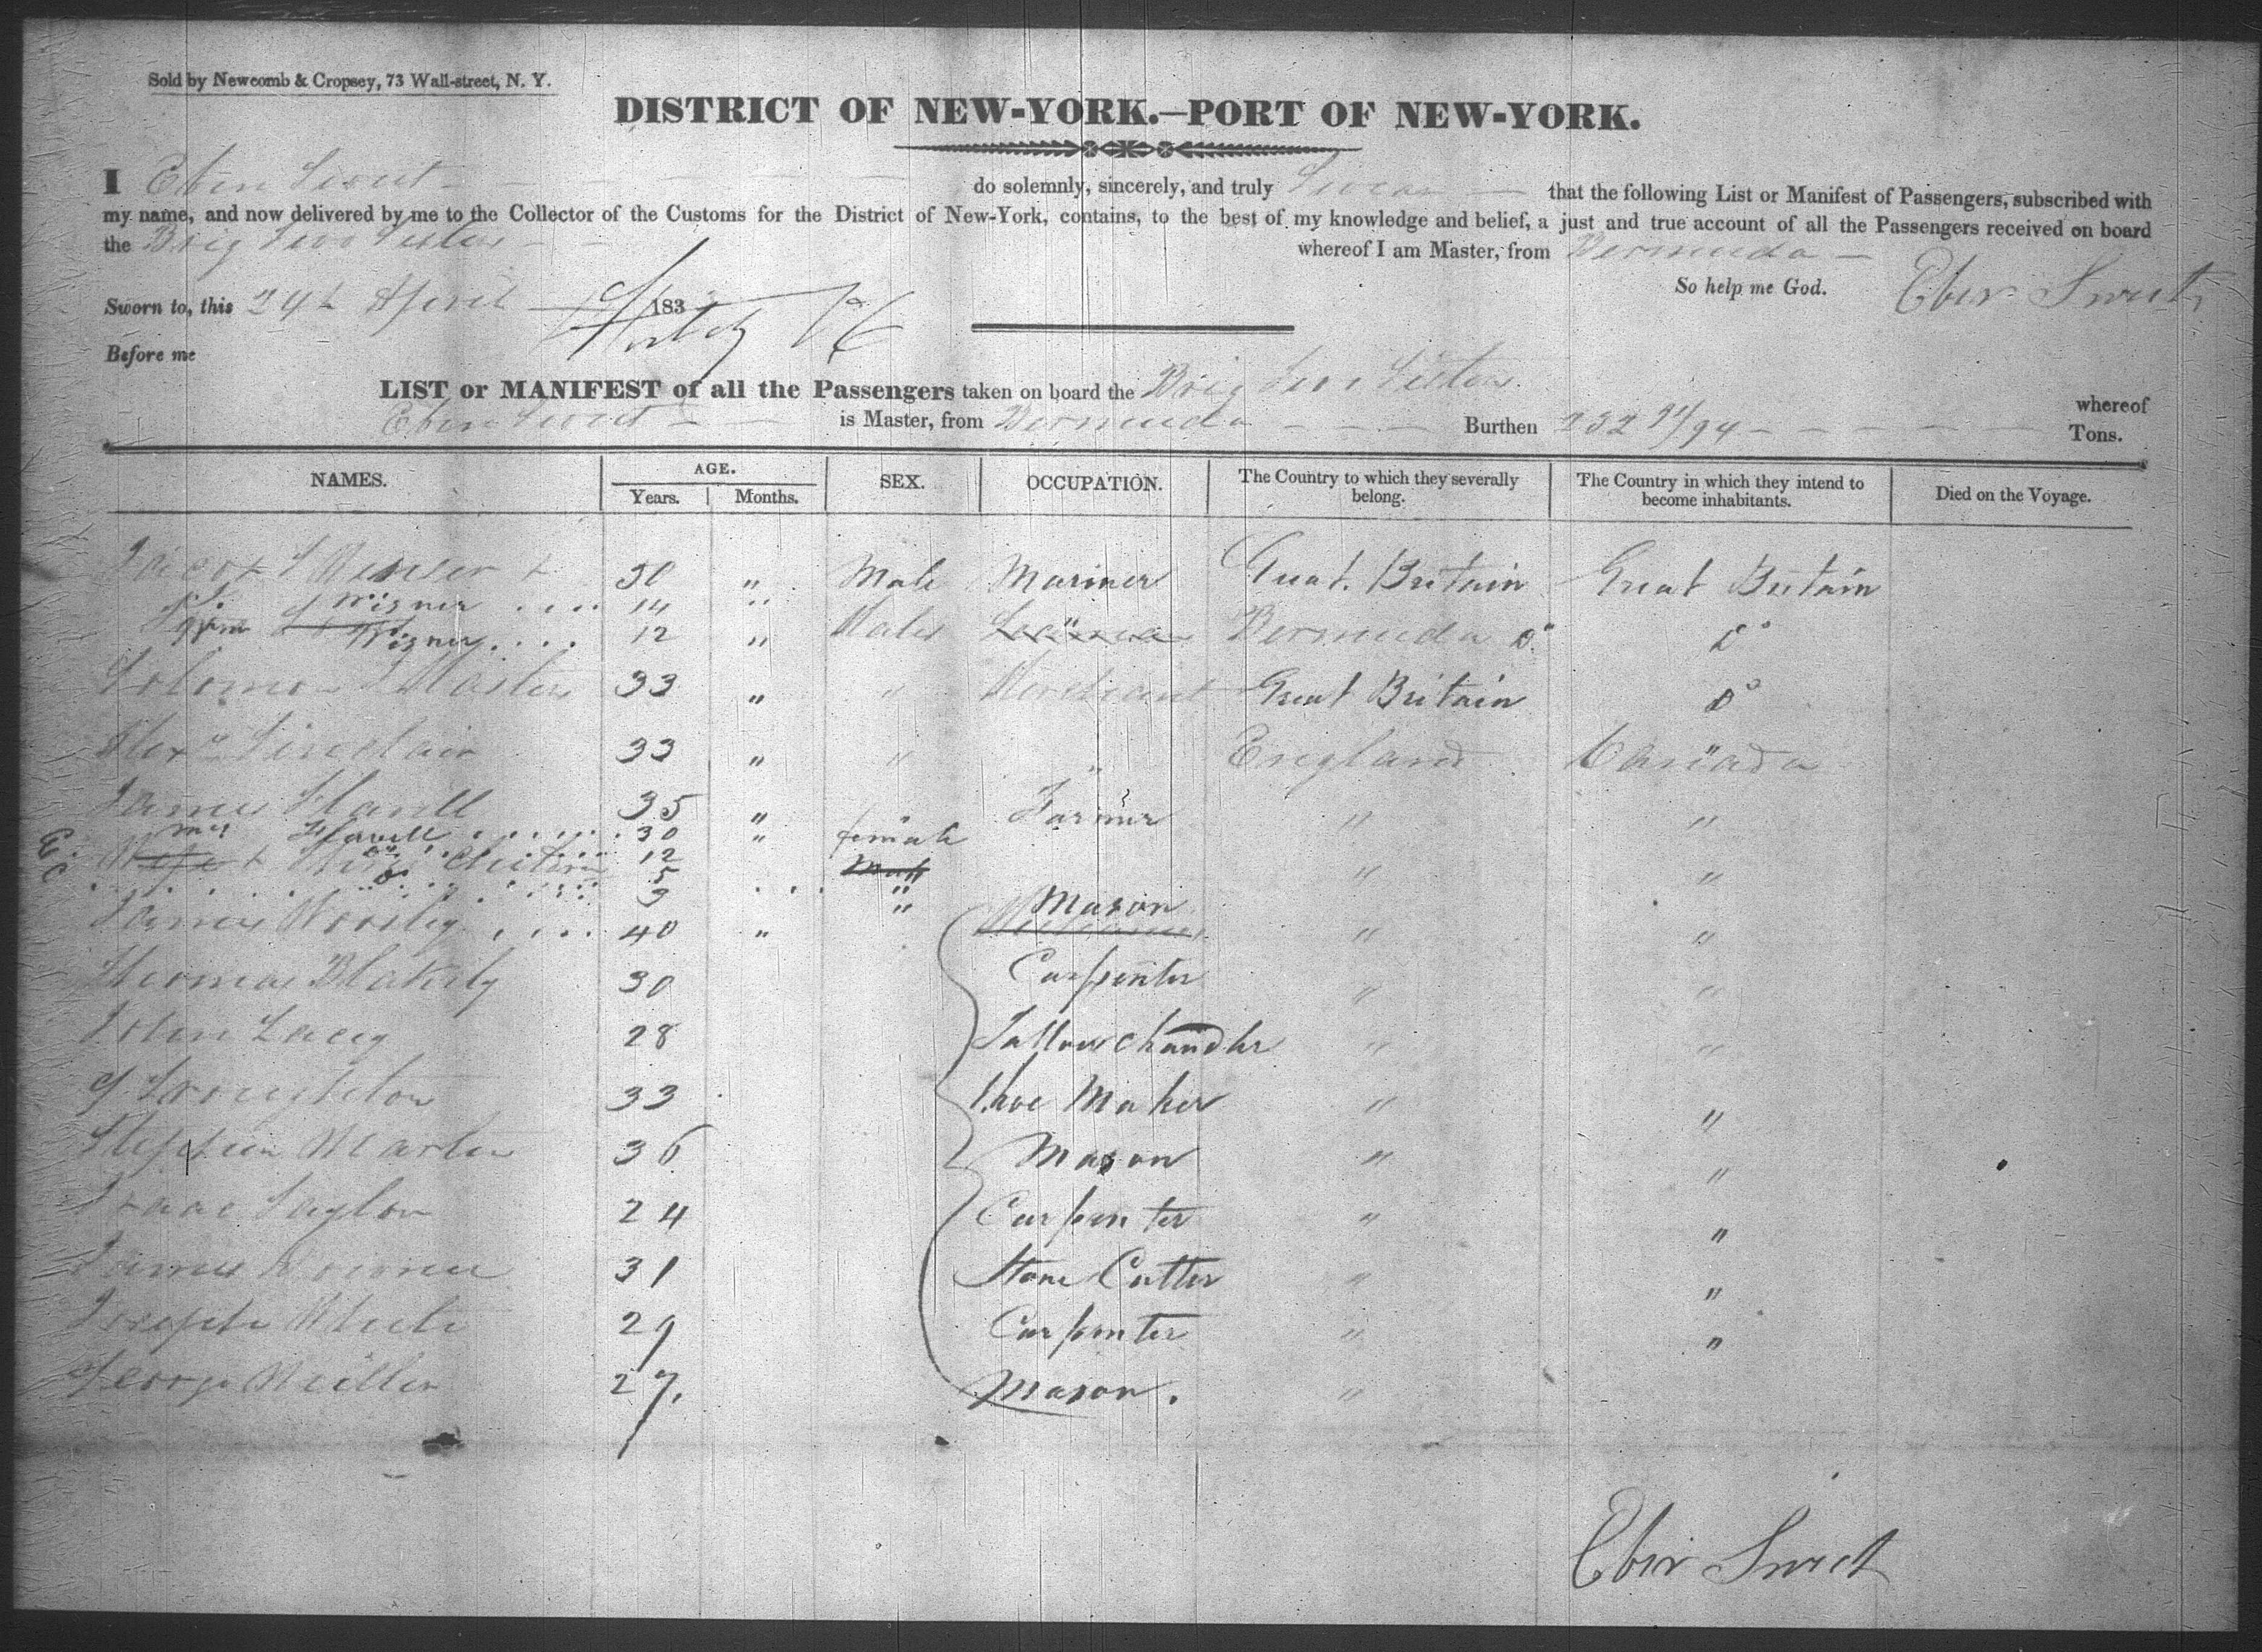 Sold by Newcomb & Cropsey, 73 Wall-street, N. Y.
DISTRICT OF NEW-YORK.—PORT OF NEW-YORK.
I Eber Sweet do solemnly, sincerely, and truly Swear that the following List or Manifest of Passengers, subscribed with
my name, and now delivered by me to the Collector of the Customs for the District of New-York, contains, to the best of my knowledge and belief, a just and true account of all the Passengers received on board
the Brig Two Sisters whereof I am Master, from Bermuda
So help me God. Eber Sweet
Sworn to, this 24th April 183
Before me
LIST or MANIFEST of all the Passengers taken on board the Brig Two Sisters whereof
Eber Sweet is Master, from Bermuda Burthen 232 91/94 Tons.
NAMES. AGE. Years. Months. SEX. OCCUPATION. The Country to which they severally belong. The Country in which they intend to become inhabitants. Died on the Voyage.
30 " Male Mariner Great Britain Great Britain
Wisner 14 "
Wisner 12 " Males Bermuda Do Do
Solomon Masters 33 " " Merchant Great Britain Do
Alexr Sinclair 33 " " " England Canada
James Flavill 35 " " Farmer " "
Mrs Flavill 30 " female
12 " "
5 "
3 "
James 40 " Mason " "
Thomas Blakely 30 Carpenter " "
John Lacey 28 Tallow Chandler " "
G Troughton 33 Shoe Maker " "
Stephen Martin 36 Mason " "
Isaac Taylor 24 Carpenter " "
James 31 Stone Cutter " "
Joseph White 29 Carpenter " "
George Miller 27. Mason. "
Eber Sweet